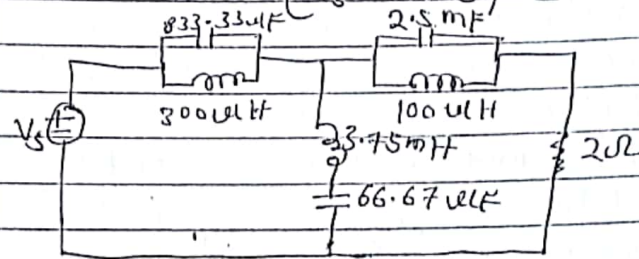 833.33uF
2.5 mF
300uH
100uH
Vs
3.75mH
2Ω
66.67uF